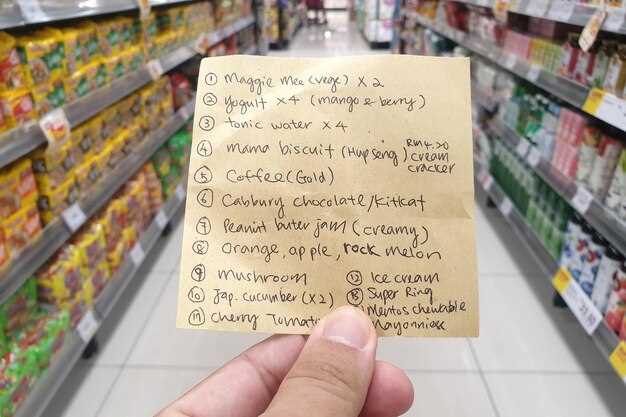 ① Maggie Mee (vege) x 2
② Yogult x 4 (mango & berry)
③ tonic water x 4
④ mama biscuit (Hup seng) RM 4.70 cream cracker
⑤ Coffee (Gold)
⑥ Cabbury chocolate/Kitkat
⑦ Peanut buter jam (creamy)
⑧ Orange, apple, rock melon
⑨ mushroom
⑩ Jap. cucumber (x2)
⑪ Cherry Tomat
⑫ Ice cream
⑬ Super Ring
Mentos chewable
Mayonniase